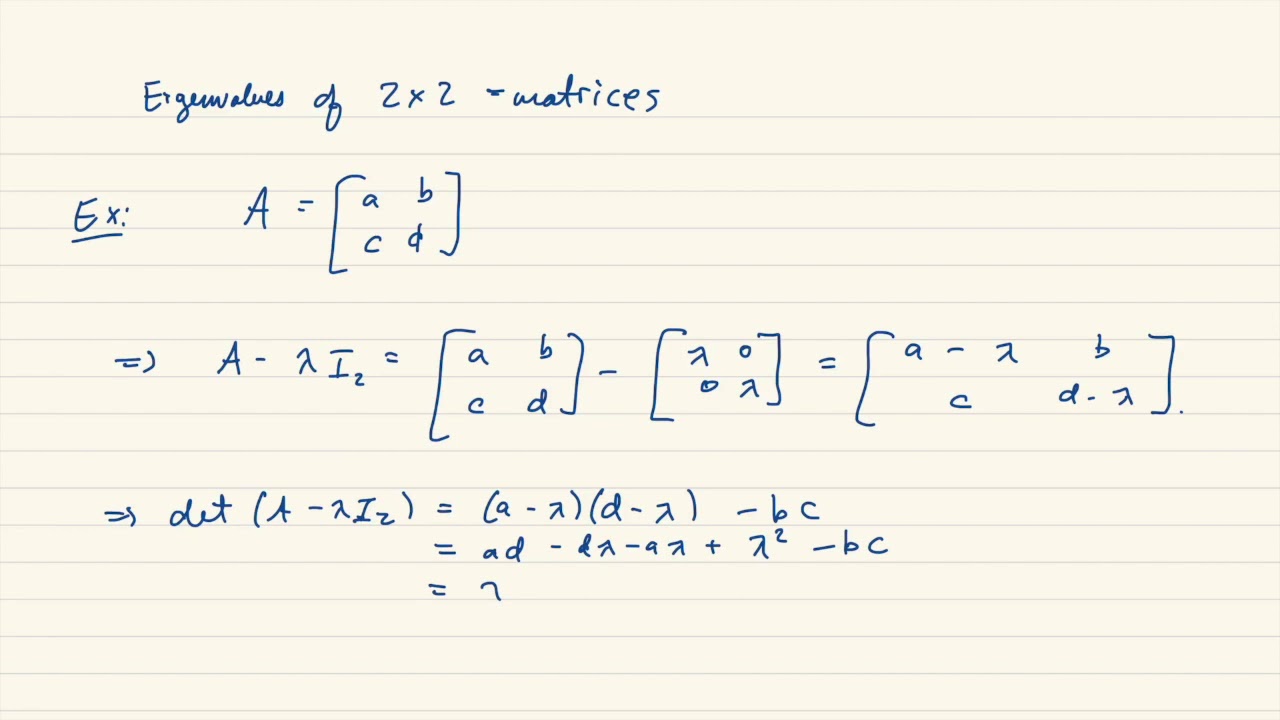 Eigenvalues of 2×2 -matrices
Ex: A = [a b; c d]
=> A - λI₂ = [a b; c d] - [λ 0; 0 λ] = [a - λ b; c d - λ].
=> det (A - λI₂) = (a - λ)(d - λ) - bc
= ad - dλ - aλ + λ² - bc
=